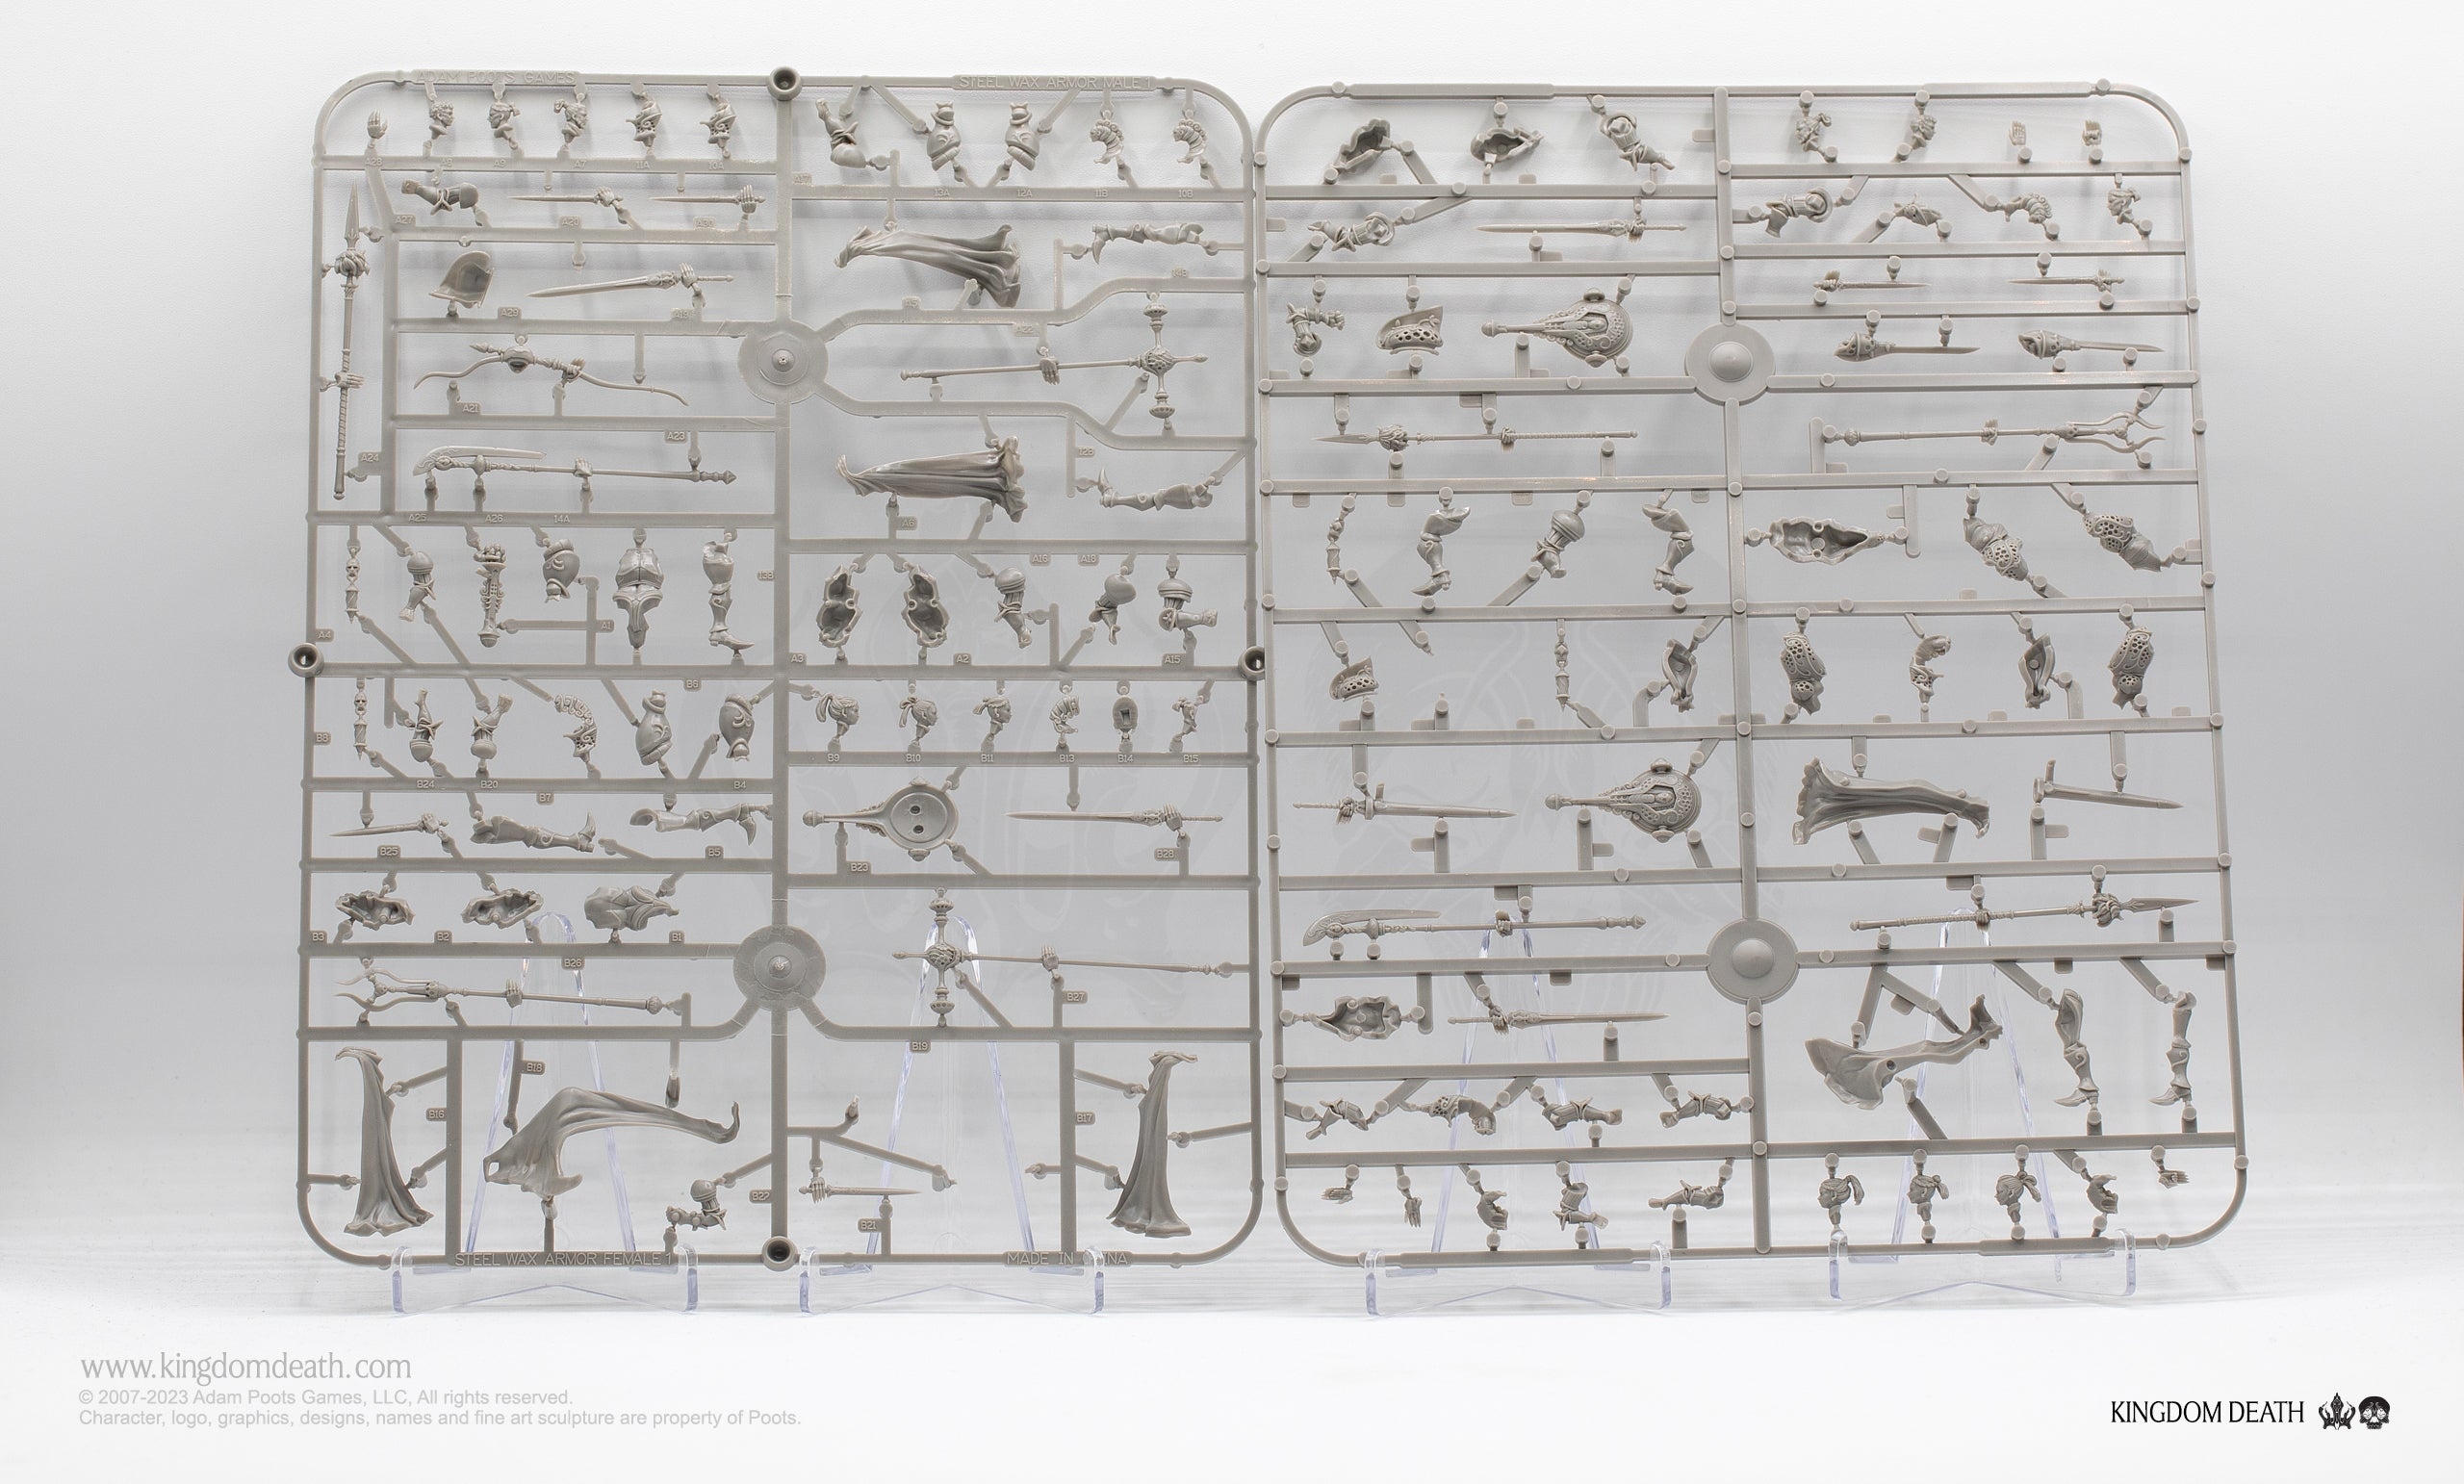 ADAM POOTS GAMES
STEEL WAX ARMOR MALE 1
A9
A7
11A
10A
13A
12A
11B
10B
A27
A20
A29
A19
A22
14B
A21
A23
12B
A24
A25
A26
14A
A6
13B
A16
A18
A4
A1
A3
A2
A15
B6
B8
B9
B10
B11
B13
B14
B15
B24
B20
B7
B4
B25
B5
B23
B28
B3
B2
B1
B26
B27
B19
B18
B16
B17
B22
B21
STEEL WAX ARMOR FEMALE 1
MADE IN
www.kingdomdeath.com
© 2007-2023 Adam Poots Games, LLC, All rights reserved.
Character, logo, graphics, designs, names and fine art sculpture are property of Poots.
KINGDOM DEATH